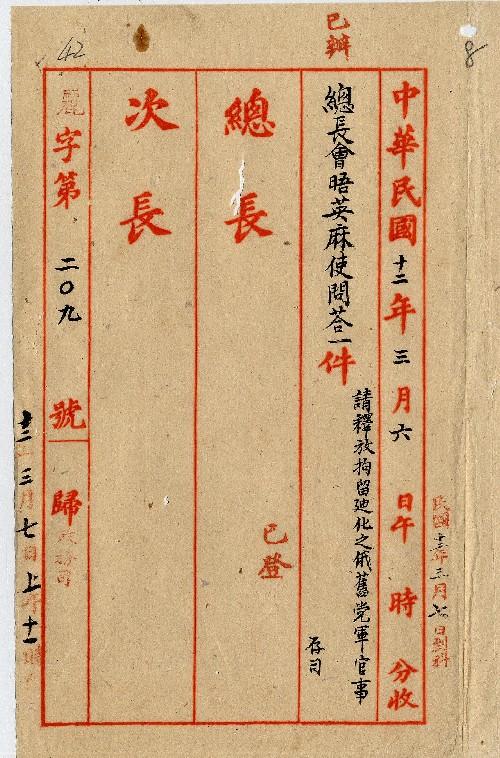 已辦
8
42
民國十二年三月七日到科
中華民國十二年三月六日午 時 分收
總長會晤英麻使問荅一件
請釋放拘留迪化之俄舊党軍官事
存司
總長
已登
次長
麗字第二〇九號歸政務司
十二年三月七日上午十一時